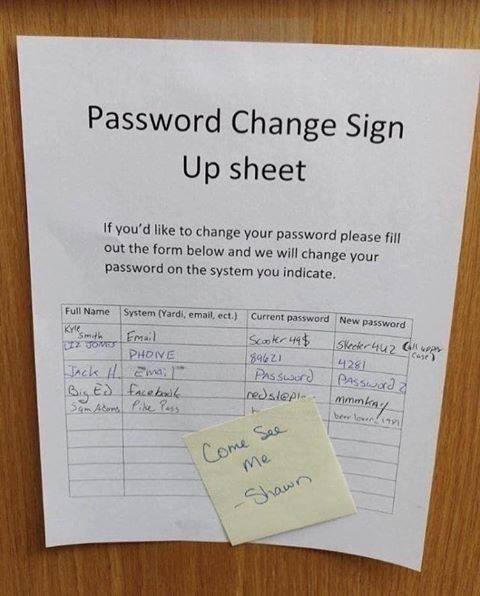 Password Change Sign
Up sheet
If you'd like to change your password please fill
out the form below and we will change your
password on the system you indicate.
Full Name System (Yardi, email, ect.) Current password New password
Kyle Smith Email Scooter 49$ Skeeter4U2 (all upper case)
Liz Jones PHONE 89621 4281
Jack H. Email Password Password 2
Big Ed facebook redstapl mmmkay
Sam Adams Pike Pass beer lover
Come See
me
- Shawn